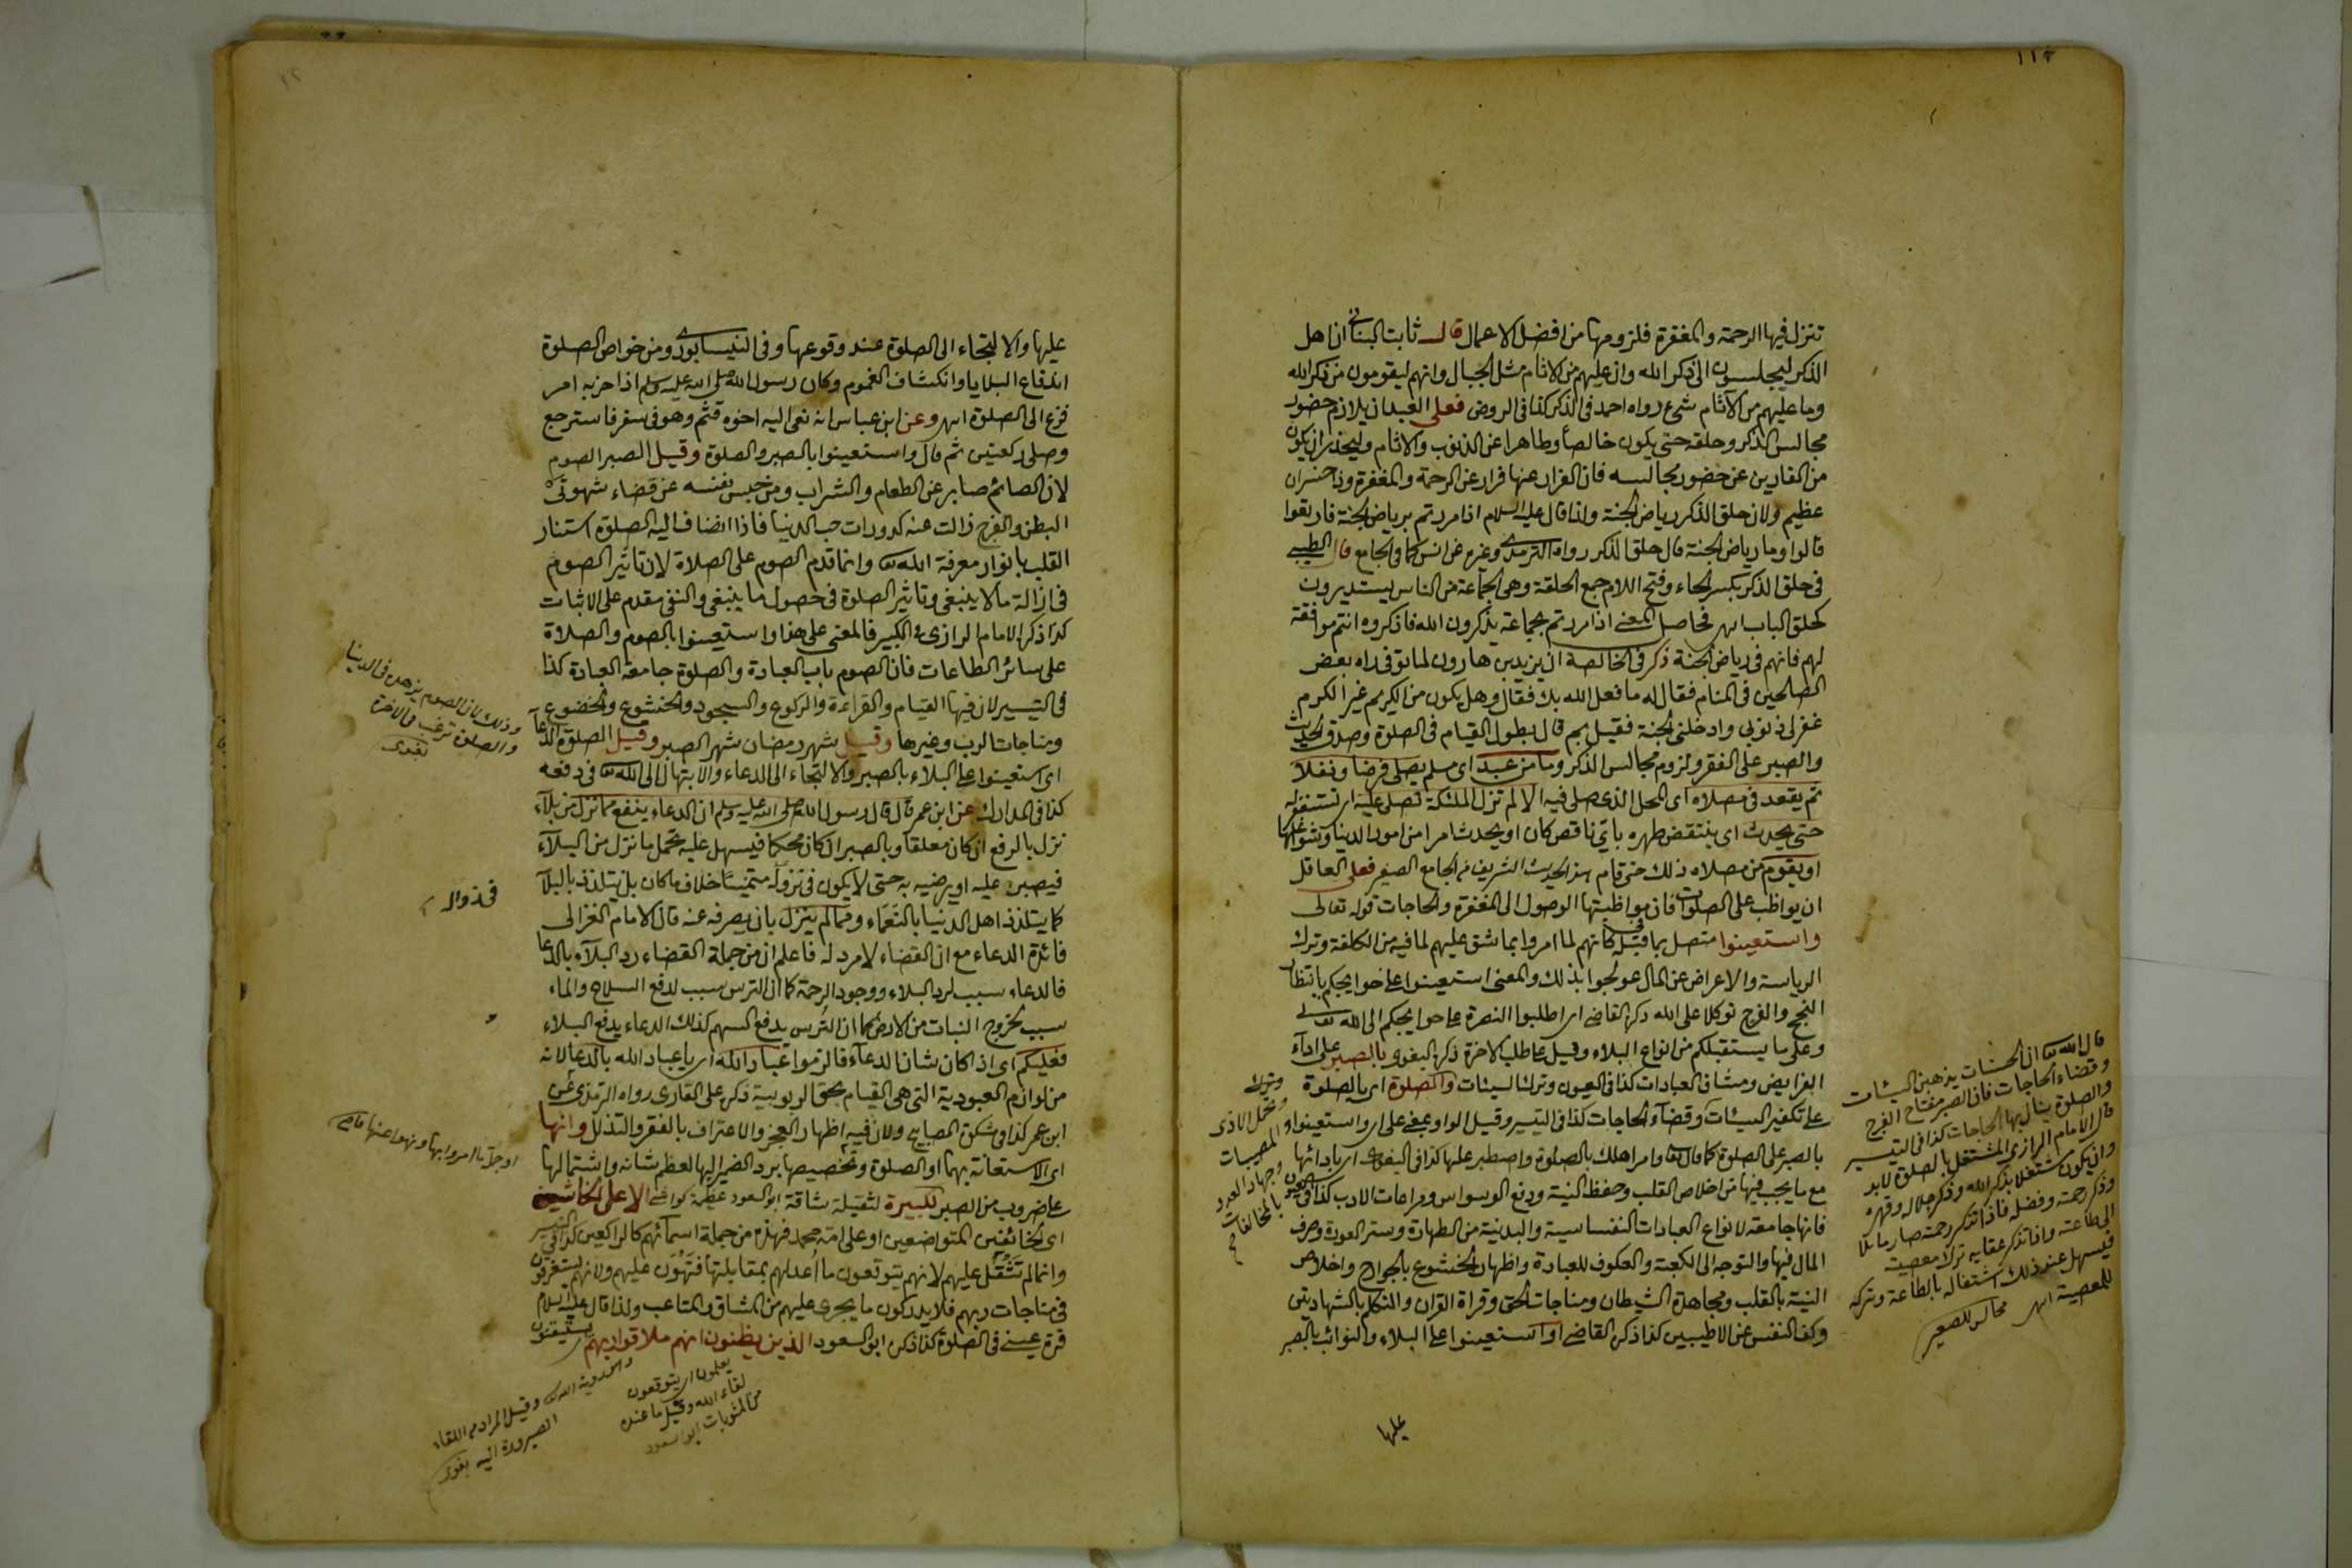 تتنزل فيها الرحمة والمغفرة فلزومها من افضل الاعمال قال ثابت البناني ان اهل
الذكر ليجلسون الى ذكر الله وان عليهم من الاثام مثل الجبال وانهم ليقومون من ذكر الله
وما عليهم من الآثام شئ رواه احمد في الذكر كذا في الروض فعلى العبد ان يلازم حضور
مجالس الذكر وحلقه حتى يكون خالصاً وطاهرا عن الذنوب والاثام وليحذر ان يكون
من الفارين عن حضور مجالسه فان الفرار عنها فرار عن الرحمة والمغفرة وذا خسران
عظيم ولان حلق الذكر رياض الجنة ولذا قال عليه السلام اذا مررتم برياض الجنة فارتعوا
قالوا وما رياض الجنة قال حلق الذكر رواه الترمذي وغيره عن انس كما في الجامع قال الطيبي
في حلق الذكر بكسر الحاء وفتح اللام جمع الحلقة وهى الجماعة من الناس يستديرون
كحلق الباب اهـ فحاصل المعنى اذا مررتم بجماعة يذكرون الله فاذكروه انتم موافقة
لهم فانهم في رياض الجنة ذكر في الخالصة ان يزيد بن هارون لما توفى راه بعض
الصالحين في المنام فقال له ما فعل الله بك فقال وهل يكون من الكريم غير الكرم
غفر لى ذنوبى وادخلنى الجنة فقيل بم قال بطول القيام في الصلوة وصدق الحديث
والصبر على الفقر ولزوم مجالس الذكر وما من عبد اى مسلم يصلى فرضا ونفلا
ثم يقعد في مصلاه اى المحل الذى صلى فيه الا لم تزل الملئكة تصلى عليه اى تستغفر له
حتى يحدث اى ينتقض طهره باى ناقص كان او يحدث امرا من امور الدنيا وشواغلها
او يقوم من مصلاه ذلك حتى قام هذا الحديث الشريف في الجامع الصغير فعلى العاقل
ان يواظب على الصلوات فان بمواظبتها الوصول الى المغفرة والحاجات قوله تعالى
واستعينوا متصل بما قبله كانهم لما امروا بما شق عليهم لما فيه من الكلفة وترك
الرياسة والاعراض عن المال عولجوا بذلك والمعنى استعينوا على حوايجكم بانتظار
النجح والفرج توكلا على الله ذكره القاضى اى اطلبوا النصرة على حوايجكم الى الله تعالى
وعلى ما يستقبلكم من انواع البلاء وقيل على طلب الاخرة ذكره البغوى بالصبر على اداء
الفرايض ومشاق العبادات كذا في العيون وترك السيئات والصلوة اى بالصلوة
على تكفير السيئات وقضآء الحاجات كذا في التيسير وقيل الواو بمعنى على اى واستعينوا
بالصبر على الصلوة كما قال الله وامر اهلك بالصلوة واصطبر عليها كذا في البغوى اى بادائها
مع ما يجب فيها من اخلاص القلب وحفظ النية ودفع الوسواس ومراعات الادب كذا في العيون
فانها جامعة لانواع العبادات النفسانية والبدنية من الطهارة وستر العورة وصرف
المال فيها والتوجه الى الكعبة والعكوف للعبادة واظهار الخشوع بالجوارح واخلاص
النية بالقلب ومجاهدة الشيطان ومناجات الحق وقراة القران والتكلم بالشهادتين
وكف النفس عن الاطيبين كذا ذكره القاضى او استعينوا على البلاء والنوائب بالصبر
عليها
قال الله ان الحسنات يذهبن السيئات
وقضاء الحاجات فان الصبر مفتاح الفرج
والصلوة ينال بها الحاجات كذا في التيسير
قال الامام الرازى المشتغل بالصلوة لابد
وان يكون مشتغلا بذكر الله وذكر جلاله وقهره
وذكر رحمته وفضله فاذا تذكر رحمته صار مائلا
الى طاعته واذا تذكر عقابه ترك معصيته
فيسهل عند ذلك اشتغاله بالطاعة وتركه
للمعصية اهـ
وتحمل الاذى
المصيبات
وجهاد العدو
عليها والالتجاء الى الصلوة عند وقوعها وفي النيسابورى ومن خواص الصلوة
اندفاع البلايا وانكشاف الغموم وكان رسول الله صلى الله عليه وسلم اذا حزبه امر
فزع الى الصلوة اهـ وعن ابن عباس انه نعى اليه اخوه قثم وهو في سفر فاسترجع
وصلى ركعتين ثم قال واستعينوا بالصبر والصلوة وقيل الصبر الصوم
لان الصائم صابر عن الطعام والشراب ومن حبس نفسه عن قضاء شهوتى
البطن والفرج زالت عنه كدورات حب الدنيا فاذا انضاف اليه الصلوة استنار
القلب بانوار معرفة الله وانما قدم الصوم على الصلاة لان تاثير الصوم
في ازالة ما لا ينبغى وتاثير الصلوة في حصول ما ينبغى والنفى مقدم على الاثبات
كذا ذكر الامام الرازى في الكبير فالمعنى على هذا واستعينوا بالصوم والصلاة
على سائر الطاعات فان الصوم باب العبادة والصلوة جامعة العبادة كذا
في التيسير لان فيها القيام والقراءة والركوع والسجود والخشوع والخضوع
ومناجات الرب وغيرها وقيل شهر رمضان شهر الصبر وقيل الصلوة الدعآ
اى استعينوا على البلاء بالصبر والالتجاء الى الدعاء والابتهال الى الله في دفعه
كذا في المدارك عن ابن عمر قال قال رسول الله صلى الله عليه وسلم ان الدعاء ينفع مما نزل من بلآء
نزل بالرفع ان كان معلقا وبالصبر ان كان محكما فيسهل عليه تحمل ما نزل من البلآء
فيصبره عليه او يرضيه به حتى لا يكون في نزوله متمنيا خلاف ما كان بل يتلذذ بالبلآ
كما يتلذذ اهل الدنيا بالنعمآء ومما لم ينزل بان يصرفه عنه قال الامام الغزالى
فائدة الدعاء مع ان القضاء لا مرد له فاعلم ان من جملة القضاء رد البلآء بالدعا
فالدعاء سبب لرد البلاء ووجود الرحمة كما ان الترس سبب لدفع السلاح والماء
سبب لخروج النبات من الارض كما ان الترس يدفع السهم كذلك الدعاء يدفع البلاء
فعليكم اى اذا كان شان الدعآء فالزموا عباد الله اى يا عباد الله بالدعا لانه
من لوازم العبودية التى هى القيام بحق الربوبية ذكره على القارى رواه الترمذى عن
ابن عمر كذا في مشكوة المصابيح ولان فيه اظهار العجز والاعتراف بالفقر والتذلل وانها
اى الاستعانة بهما او الصلوة وتخصيصها برد الضمير اليها لعظم شانها واشتمالها
على ضروب من الصبر لكبيرة لثقيلة شاقة ابو السعود الا على الخاشعين
اى الخائفين المتواضعين او على امة محمد فهذه من جملة اسمآئهم كالراكعين كذا في التيسير
وانما لم تثقل عليهم لانهم يتوقعون ما اعد لهم بمقابلتها فتهون عليهم ولانهم يستغرقون
في مناجات ربهم فلا يدركون ما يجرى عليهم من المشاق والمتاعب ولذا قال عليه السلام
قرة عينى في الصلوة كذا ذكره ابو السعود الذين يظنون انهم ملاقوا ربهم يستيقنون
وذلك لان الصوم يزهده في الدنيا
والصلوة ترغب في الاخرة
بغوى
او جملة ما امروا بها ونهوا عنها قاضى
يعلمون اى يتوقعون
لقاء الله وقيل ما عنده
من المثوبات ابو السعود
وقيل المراد من اللقاء
الصيرورة اليه بغوى